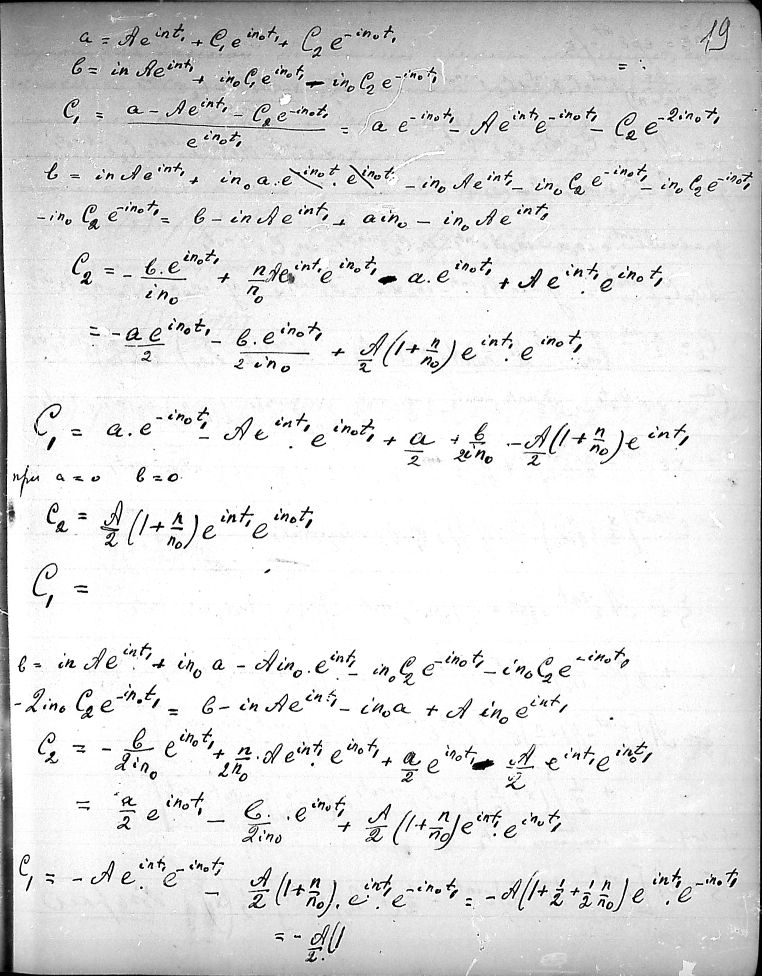 19
a = Ae^{int₁} + C₁e^{in₀t₁} + C₂e^{-in₀t₁}
b = in Ae^{int₁} + in₀C₁e^{in₀t₁} - in₀C₂e^{-in₀t₁}
= :
C₁ = (a - Ae^{int₁} - C₂e^{-in₀t₁}) / e^{in₀t₁} = a e^{-in₀t₁} - Ae^{int₁}e^{-in₀t₁} - C₂e^{-2in₀t₁}
b = in Ae^{int₁} + in₀ a . e^{-in₀t} . e^{in₀t} - in₀ Ae^{int₁} - in₀ C₂e^{-in₀t₁} - in₀C₂e^{-in₀t₁}
-in₀ C₂e^{-in₀t₁} = b - in Ae^{int₁} + a in₀ - in₀ Ae^{int₁}
C₂ = - b.e^{in₀t₁}/in₀ + n/n₀ Ae^{int₁}e^{in₀t₁} - a.e^{in₀t₁} + Ae^{int₁}.e^{in₀t₁}
= - a e^{in₀t₁}/2 - b.e^{in₀t₁}/2in₀ + A/2 (1 + n/n₀) e^{int₁}. e^{in₀t₁}
C₁ = a.e^{-in₀t₁} - Ae^{int₁}. e^{in₀t₁} + a/2 + b/2in₀ - A/2 (1 + n/n₀) e^{int₁}
при a = 0 b = 0
C₂ = A/2 (1 + n/n₀) e^{int₁}e^{in₀t₁}
C₁ =
b = in Ae^{int₁} + in₀ a - A in₀.e^{int₁} - in₀C₂e^{-in₀t₁} - in₀C₂e^{-in₀t₀}
-2in₀ C₂e^{-in₀t₁} = b - in Ae^{int₁} - in₀a + A in₀e^{int₁}
C₂ = - b/2in₀ e^{in₀t₁} + n/2n₀ . Ae^{int₁} e^{in₀t₁} + a/2 e^{in₀t₁} - A/2 e^{int₁}e^{in₀t₁}
= a/2 e^{in₀t₁} - b/2in₀ . e^{in₀t₁} + A/2 (1 + n/n₀) e^{int₁}.e^{in₀t₁}
C₁ = - Ae^{int₁}.e^{-in₀t₁} - A/2 (1 + n/n₀).e^{int₁}.e^{-in₀t₁} = - A(1 + 1/2 + 1/2 n/n₀) e^{int₁}.e^{-in₀t₁}
= - A/2 (1